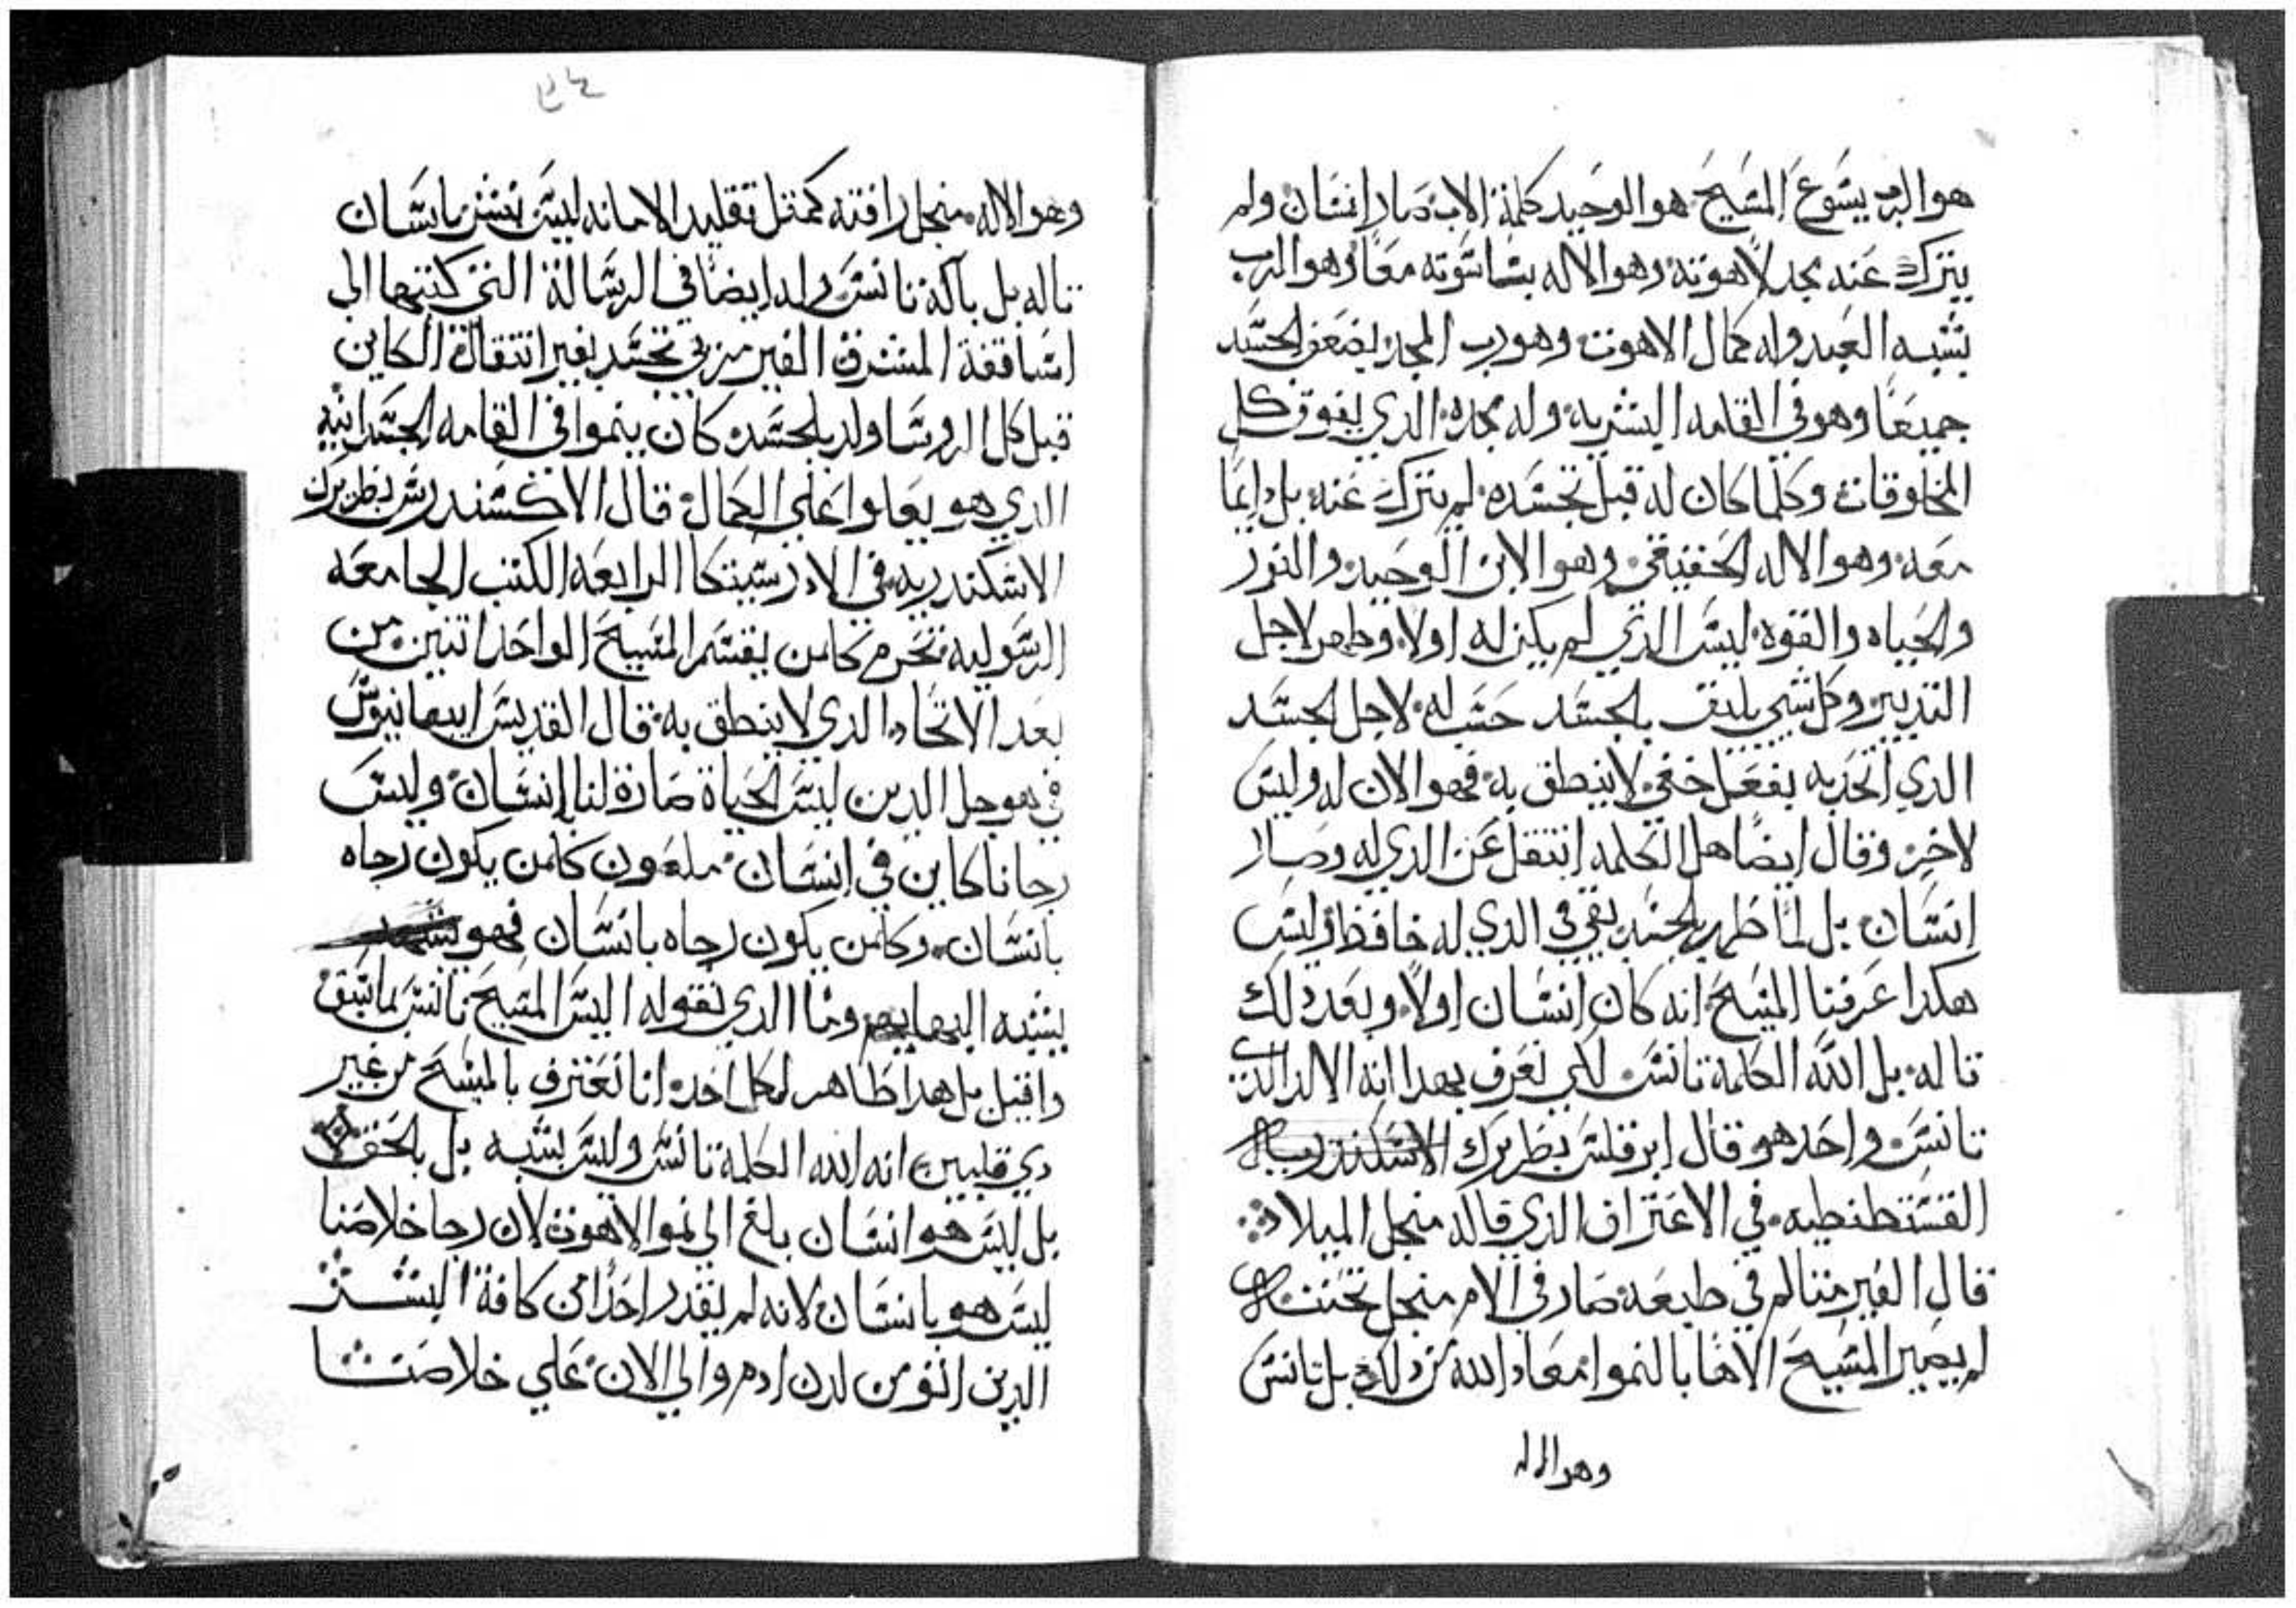 هو الرب يسوع المسيح هو الوحيد كلمة الاب صار انسان ولم
يترك عنه مجد لاهوته وهو الاله بناسوته معًا وهو الرب
بشبه العبد وله كمال الاهوت وهو رب المجد بضعف الجسد
جميعًا وهو في القامه البشريه وله مجده الدي يفوق كل
المخلوقات وكلما كان له قبل تجسده لم يترك عنه بل دايمًا
معه وهو الاله الحقيقي وهو الابن الوحيد والنور
والحياه والقوه ليس الدي لم يكن له اولا وظهر لاجل
التدبير وكل شي يليق بالجسد حسب له لاجل الجسد
الدي اتحد به بفعل خفي لا ينطق به فهو الان له وليس
لاخر وقال ايضًا هل الكلمه انتقل عن الدي له وصار
انسان بل لما ظهر بالجسد بقي في الدي له حافظ وليس
هكدا عرفنا المسيح انه كان انسان اولاً وبعد دلك
تاله بل الله الكلمة تانس لكي نعرف بهدا انه الاله الدي
تانس واحد هو قال ابرقلس بطريرك الاسكندريه
القسطنطيه في الاعتراف الدي قاله منجل الميلاد
قال الغير متالم في طبيعه صار في الام منجل تحننه
لم يصير المسيح الاهًا بالنموا معاد الله من دلك بل تانس
وهو الاله
وهو الاله منجل رافته كمتل تقليد الامانه ليس نبشر بانسان
تاله بل باله تانس وله ايضًا في الرسالة التي كتبها الي
اساقفة المشرق الغير مرىي تجسد بغير انتقال الكاين
قبل كل الروسا ولد بالجسد كان ينموا في القامه الجسدانيه
الدي هو يعلوا علي الكمال قال الاكسندرس بطريرك
الاسكندريه في الادرستيكا الرابعه الكتب الجامعه
الرسوليه تحرم كلمن يقسم المسيح الواحد اتنين من
بعد الاتحاد الدي لا ينطق به قال القديس ابيفانيوس
في هو جل الدين ليس الحياة صارة لنا انسان وليس
رجانا كاين في انسان ملعون كلمن يكون رجاه
بانسان وكلمن يكون رجاه بانسان فهو
يشبه البهايم وما الدي نقوله اليس المسيح تانس لما سبق
واقيل بل هدا ظاهر لكل احد انا نعترف بالمسيح من غير
دي قلبين انه الله الكلمة تانس وليس بشبه بل بالحق
بل ليس هو انسان بلغ الي نمو الاهوت لان رجا خلاصنا
ليس هو بانسان لانه لم يقدر احدًا من كافة البشر
الدين القومن لدن ادم والي الان علي خلاصنا